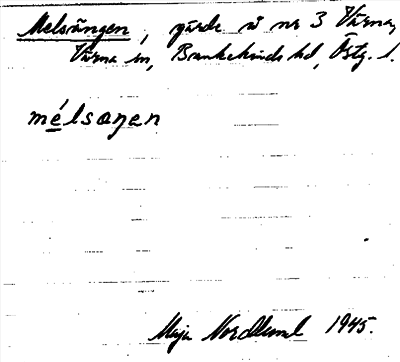 Melsängen, gärde å nr 3 Värna,
Värna sn, Bankekinds hd, Östg. l.
mélsaŋen
Maja Nordlund 1945.